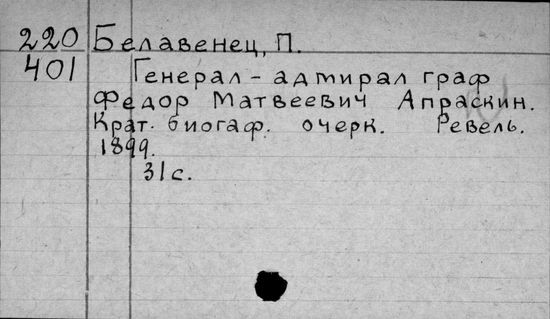 220 Белавенец, П.
401 Генерал-адмирал граф
Федор Матвеевич Апраскин.
Крат. биогаф. очерк. Ревель.
1899.
31с.